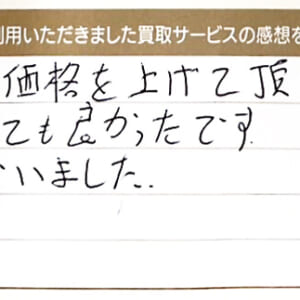 利用いただきました買取サービスの感想を
価格を上げて頂
ても良かったです
いました.